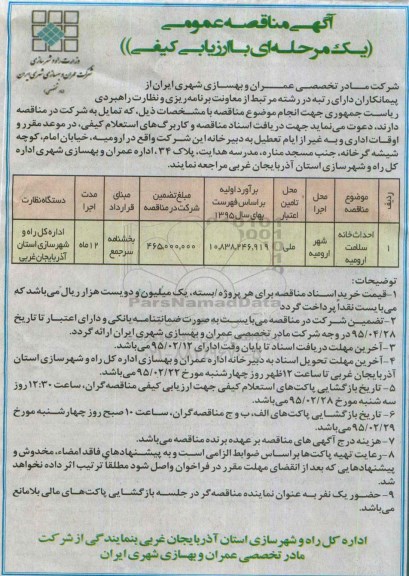 آگهی مناقصه عمومی
((یک مرحله‌ای با ارزیابی کیفی))
وزارت راه و شهرسازی
شرکت عمران و بهسازی شهری ایران
شرکت مادر تخصصی عمــران و بهســازی شهری ایران از
پیمانکاران دارای رتبه در رشته مرتبط از معاونت برنامه‌ریزی و نظارت راهبردی
ریاست جمهوری جهت انجام موضوع مناقصه با مشخصات ذیل، که تمایل به شرکت در مناقصه
دارند، دعوت می‌نماید جهت دریافت اسناد مناقصه و کاربرگ‌های استعلام کیفی، در موعد مقرر و
اوقات اداری و به غیر از ایام تعطیل به دبیرخانه این شرکت واقع در ارومیه، خیابان امام، کوچه
شیشه گرخانه، جنب مسجد مناره، مدرسه هدایت، پلاک ۳۴، اداره عمران و بهسازی شهری اداره
کل راه و شهرسازی استان آذربایجان غربی مراجعه نمایند.
ردیف | موضوع مناقصه | محل اجرا | محل تامین اعتبار | برآورد اولیه براساس فهرست بهای سال ۱۳۹۵ | مبلغ تضمین شرکت در مناقصه | مبنای قرارداد | مدت اجرا | دستگاه نظارت
۱ | احداث خانه سلامت ارومیه | شهر ارومیه | ملی | ۱۰,۸۳۸,۲۴۶,۹۱۹ | ۴۶۵,۰۰۰,۰۰۰ | بخشنامه سرجمع | ۱۲ ماه | اداره کل راه و شهرسازی استان آذربایجان غربی
توضیحات:
۱- قیمت خرید اسناد مناقصه برای هر پروژه /بسته، یک میلیون و دویست هزار ریال می‌باشد که
می‌بایست نقدا پرداخت گردد
۲- تضمین شرکت در مناقصه می‌بایست به صورت ضمانتنامه بانکی و دارای اعتبار تا تاریخ
۹۵/۰۴/۲۸ در وجه شرکت مادر تخصصی عمران و بهسازی شهری ایران ارائه گردد.
۳- آخرین مهلت دریافت اسناد تا پایان وقت اداری ۹۵/۰۲/۱۲ می‌باشد.
۴- آخرین مهلت تحویل اسناد به دبیرخانه اداره عمران و بهسازی اداره کل راه و شهرسازی استان
آذربایجان غربی تا ساعت ۱۲ ظهر روز چهارشنبه مورخ ۹۵/۰۲/۲۲ می‌باشد.
۵- تاریخ بازگشایی پاکت‌های استعلام کیفی جهت ارزیابی کیفی مناقصه‌گران، ساعت ۱۲:۳۰ روز
سه شنبه مورخ ۹۵/۰۲/۲۸ می‌باشد.
۶- تاریخ بازگشایی پاکت‌های الف، ب و ج مناقصه گران، ساعت ۱۰ صبح روز چهارشنبه مورخ
۹۵/۰۲/۲۹ می‌باشد.
۷- هزینه درج آگهی های مناقصه بر عهده برنده مناقصه می‌باشد.
۸- رعایت تهیه پاکت‌ها بر اساس ضوابط الزامی است و به پیشنهادهای فاقد امضاء، مخدوش و
پیشنهادهایی که بعد از انقضای مهلت مقرر در فراخوان واصل شود مطلقا ترتیب اثر داده نخواهد
شد.
۹- حضور یک نفر به عنوان نماینده مناقصه‌گر در جلسه بازگشایی پاکت‌های مالی بلامانع
می‌باشد.
اداره کل راه و شهرسازی استان آذربایجان غربی بنمایندگی از شرکت
مادر تخصصی عمران و بهسازی شهری ایران